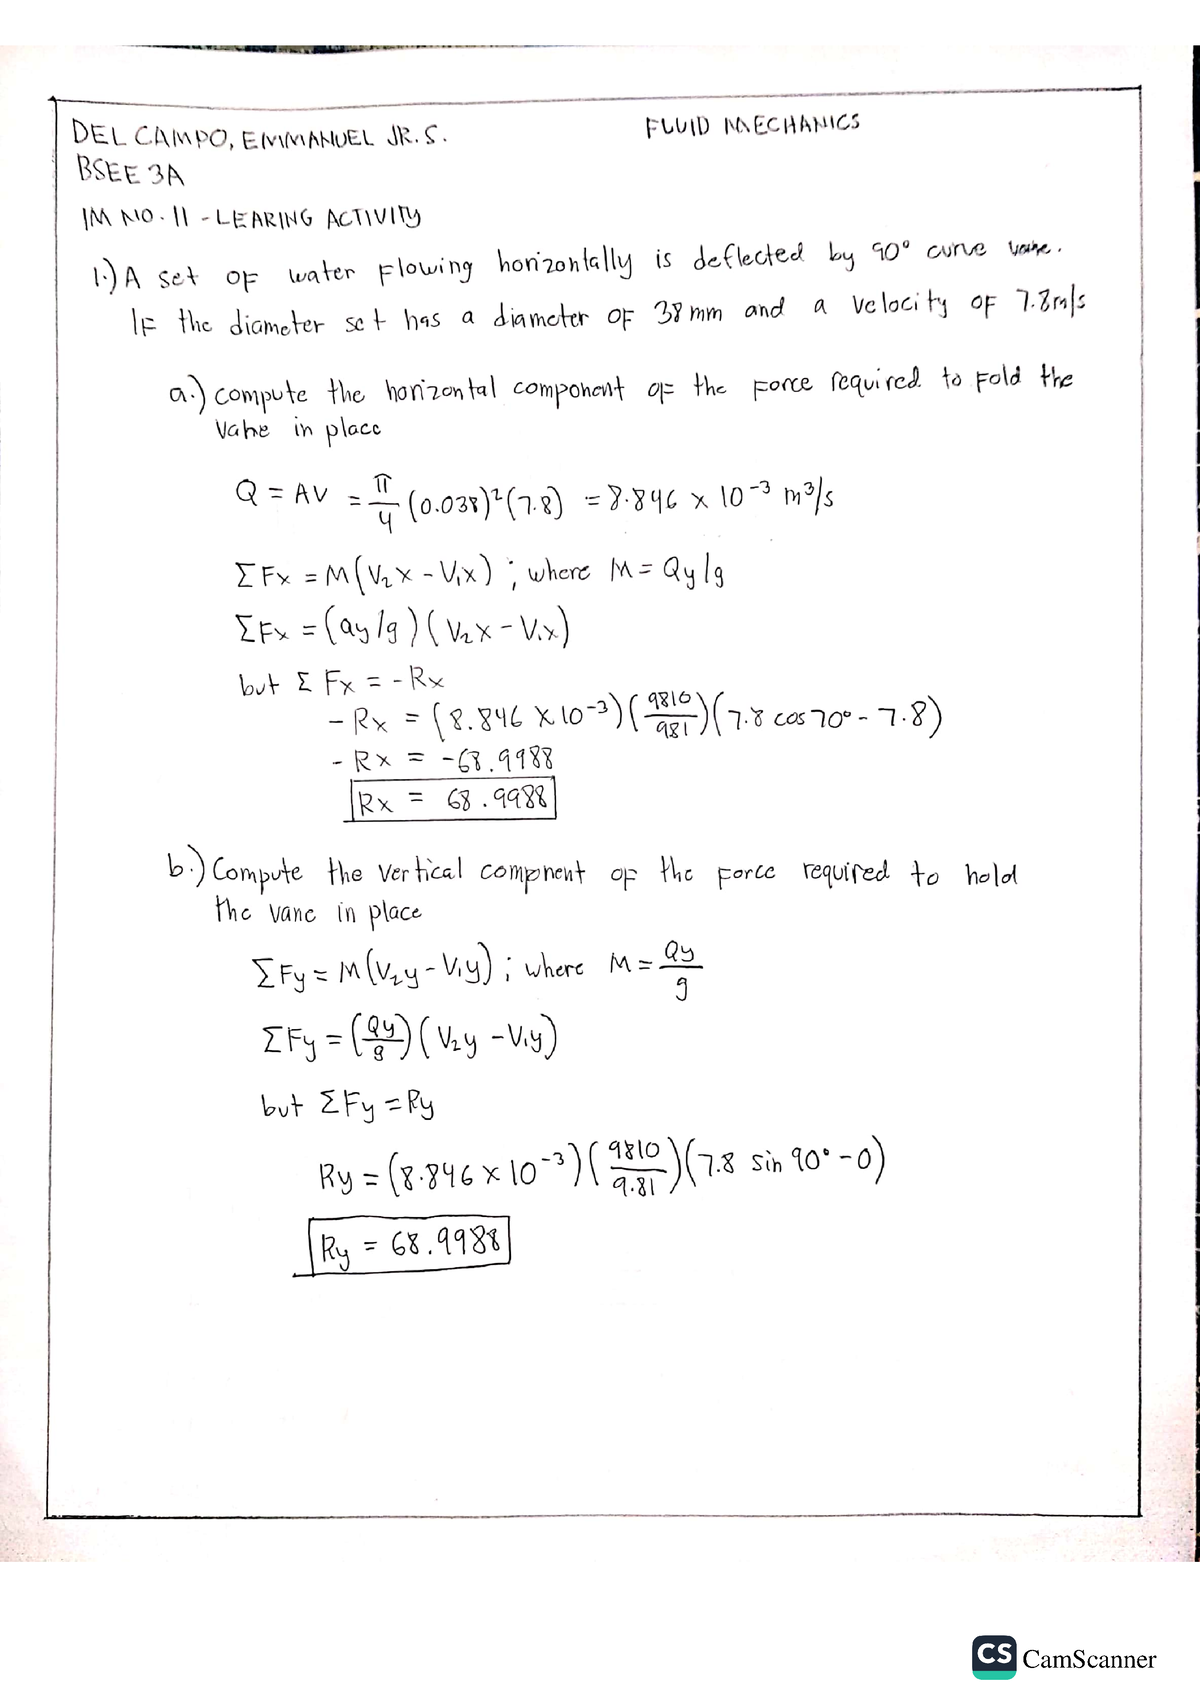 DEL CAMPO, EMMANUEL JR. S. FLUID MECHANICS
BSEE 3A
IM NO. 11 - LEARING ACTIVITY
1.) A set of water flowing horizontally is deflected by 90° curve vane.
If the diameter set has a diameter of 38 mm and a velocity of 7.8m/s
a.) compute the horizontal component of the force required to fold the
vane in place
Q = AV = π/4 (0.038)²(7.8) = 8.846 x 10-³ m³/s
ΣFx = M(V₂x - V₁x) ; where M = Qy/g
ΣFx = (Qy/g)(V₂x - V₁x)
but Σ Fx = - Rx
- Rx = (8.846 x 10-³)(9810/981)(7.8 cos 70° - 7.8)
- Rx = -68.9988
Rx = 68.9988
b.) Compute the vertical compnent of the force required to hold
the vane in place
ΣFy = M(V₂y - V₁y) ; where M = Qy/g
ΣFy = (Qy/g)(V₂y - V₁y)
but ΣFy = Ry
Ry = (8.846 x 10-³)(9810/9.81)(7.8 sin 90° - 0)
Ry = 68.9988
CS CamScanner